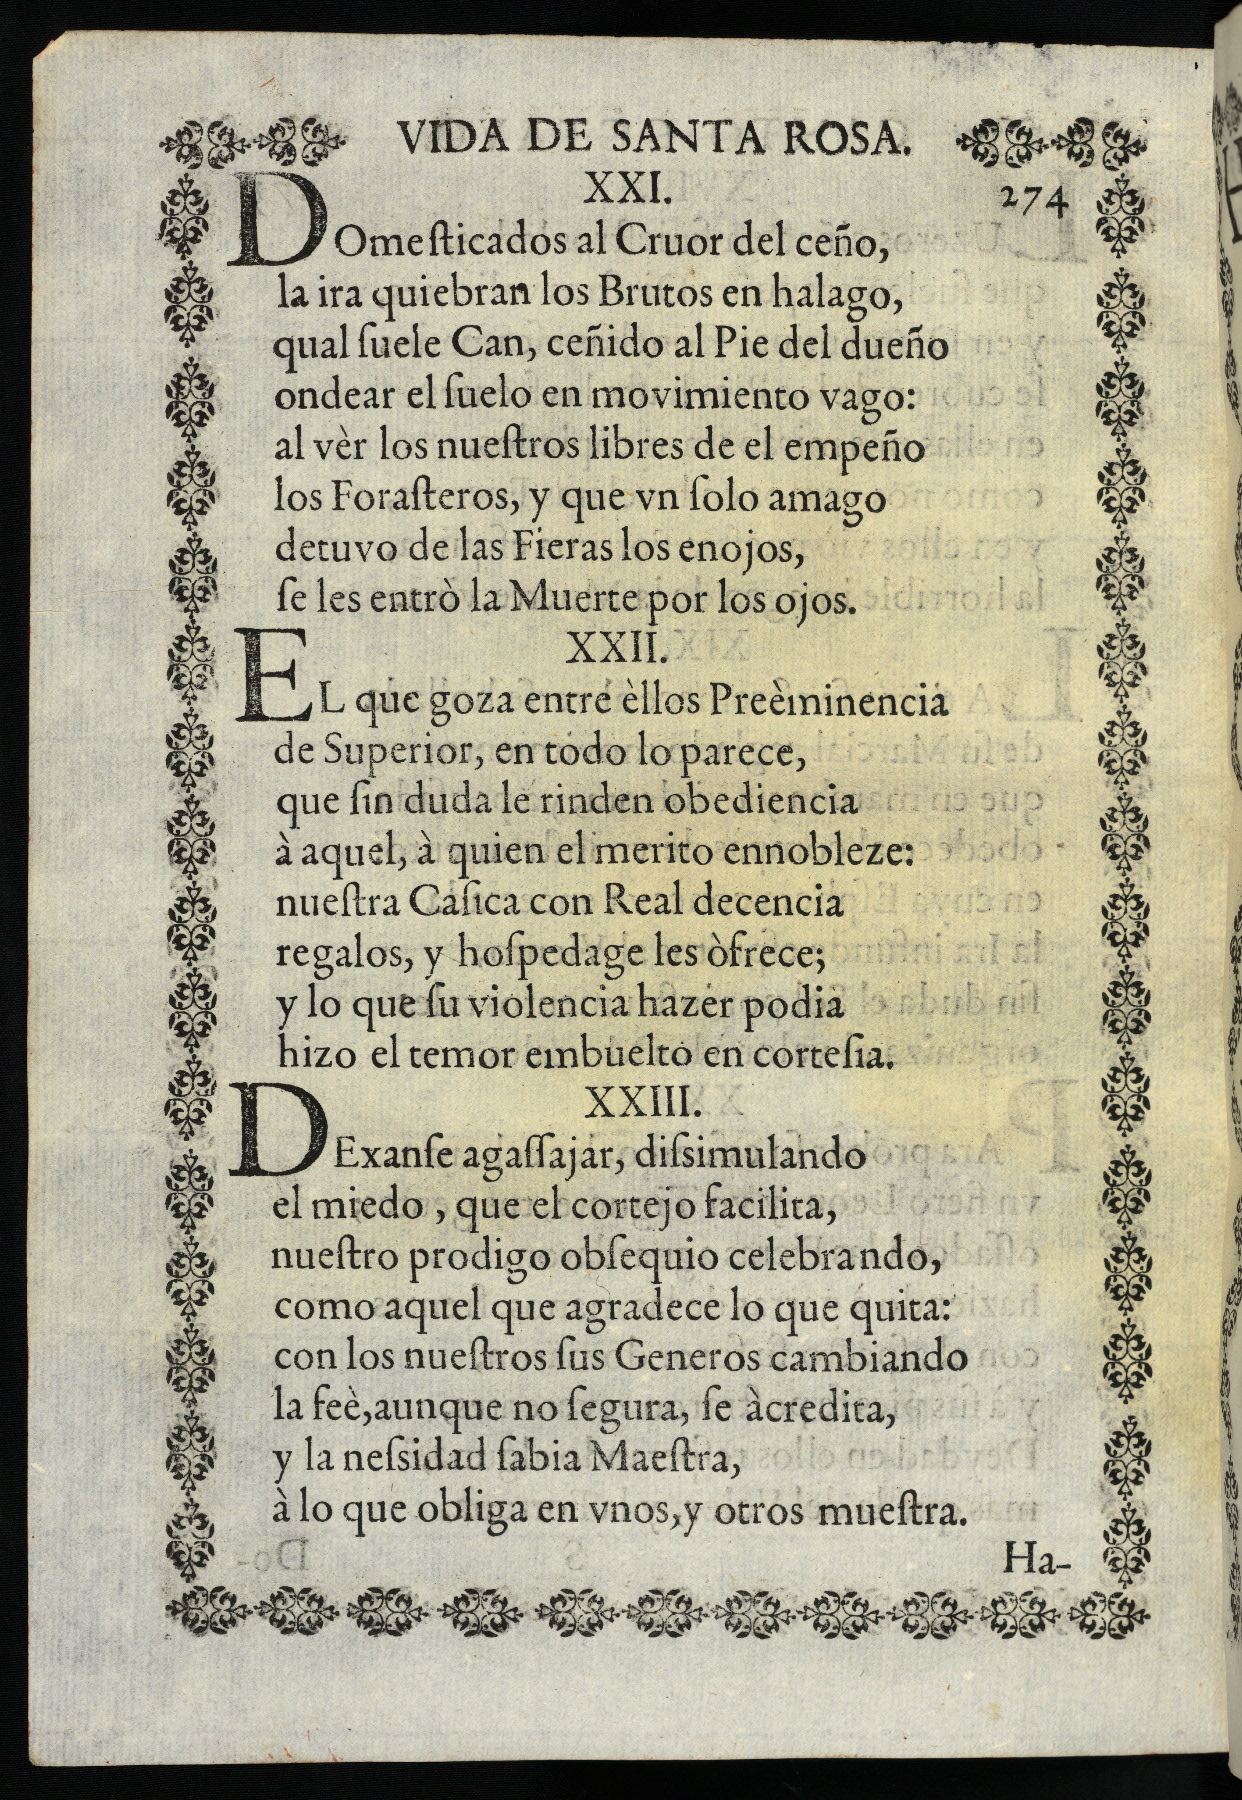 VIDA DE SANTA ROSA.
XXI. 274
DOmeſticados al Cruor del ceño,
la ira quiebran los Brutos en halago,
qual ſuele Can, ceñido al Pie del dueño
ondear el ſuelo en movimiento vago:
al vèr los nueſtros libres de el empeño
los Foraſteros, y que vn ſolo amago
detuvo de las Fieras los enojos,
ſe les entrò la Muerte por los ojos.
XXII.
EL que goza entre èllos Preèminencia
de Superior, en todo lo parece,
que ſin duda le rinden obediencia
à aquel, à quien el merito ennobleze:
nueſtra Caſica con Real decencia
regalos, y hoſpedage les òfrece;
y lo que ſu violencia hazer podia
hizo el temor embuelto en corteſia.
XXIII.
DExanſe agaſſajar, diſsimulando
el miedo , que el cortejo facilita,
nueſtro prodigo obſequio celebrando,
como aquel que agradece lo que quita:
con los nueſtros ſus Generos cambiando
la feè,aunque no ſegura, ſe àcredita,
y la neſsidad ſabia Maeſtra,
à lo que obliga en vnos,y otros mueſtra.
Ha-